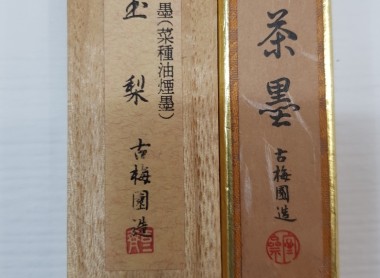 茶墨
古梅園造
墨(菜種油煙墨)
玉梨
古梅園造